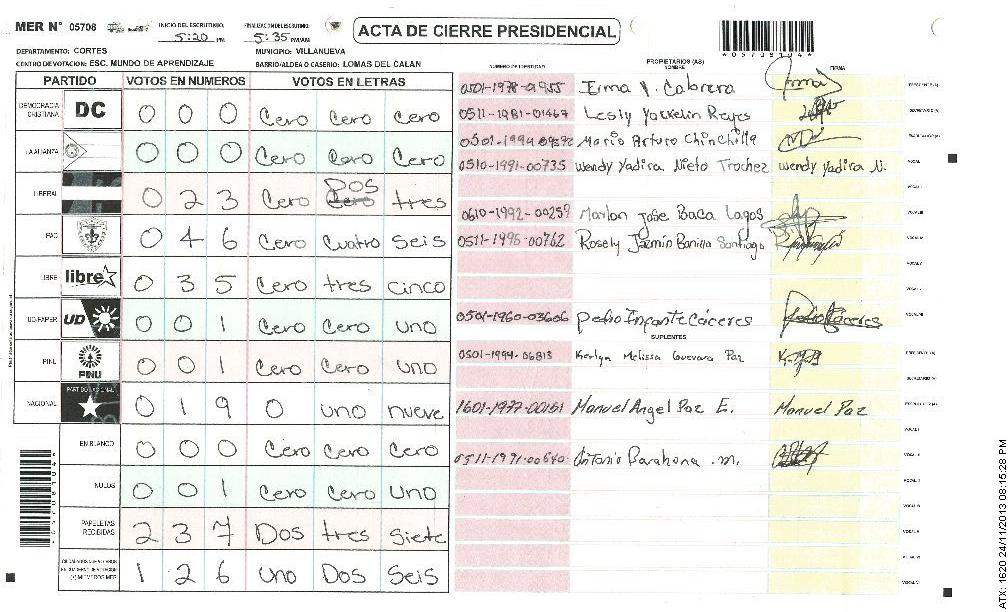 MER Nº 05708 INICIO DEL ESCRUTINIO: 5:20 PM FINALIZACION DEL ESCRUTINIO: 5:35 PM/AM ACTA DE CIERRE PRESIDENCIAL
*05708104*
DEPARTAMENTO: CORTES MUNICIPIO: VILLANUEVA
CENTRO DE VOTACION: ESC. MUNDO DE APRENDIZAJE BARRIO/ALDEA O CASERIO: LOMAS DEL CALAN
PARTIDO VOTOS EN NUMEROS VOTOS EN LETRAS
DEMOCRACIA CRISTIANA DC 0 0 0 Cero Cero Cero
LA ALIANZA 0 0 0 Cero Cero Cero
LIBERAL 0 2 3 Cero Dos Cero tres
PAC 0 4 6 Cero Cuatro Seis
LIBRE libre 0 3 5 Cero tres cinco
UD/FAPER UD 0 0 1 Cero Cero uno
PINU PINU 0 0 1 Cero Cero uno
NACIONAL PARTIDO NACIONAL 0 1 9 0 uno nueve
EN BLANCO 0 0 0 Cero Cero Cero
NULOS 0 0 1 Cero Cero uno
PAPELETAS RECIBIDAS 2 3 7 Dos tres siete
1 2 6 uno Dos Seis
*05708104*
NUMERO DE IDENTIDAD PROPIETARIOS (AS) NOMBRE FIRMA
0501-1978-01955 Irma Y. Cabrera Irma PRESIDENTE (A)
0511-1981-01467 Lesly Yackelin Reyes SECRETARIO (A)
Mario Arturo Chinchilla
0510-1991-00735 Wendy Yadira Nieto Trochez Wendy Yadira N. VOCAL
VOCAL I
0610-1992-00259 Marlon Jose Baca Lagos VOCAL III
0511-1995-00762 Rosely Jazmin Bonilla Santiago
VOCAL V
0501-1960-03606 Pedro Infante Cáceres Pedro Cáceres
SUPLENTES
0501-1994-06813 Kerlyn Melissa Guevara Paz PRESIDENTE (A)
SECRETARIO (A)
1601-1977-00151 Manuel Angel Paz E. Manuel Paz
VOCAL I
0511-1971-00640 Antonio Barahona .M. VOCAL II
ATX: 1620 24/11/2013 08:15:28 PM